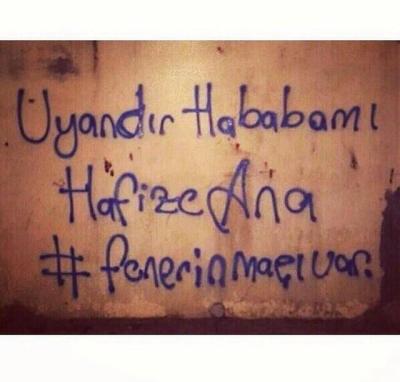 Uyandır Hababamı
Hafize Ana
#fenerinmaçıvar.